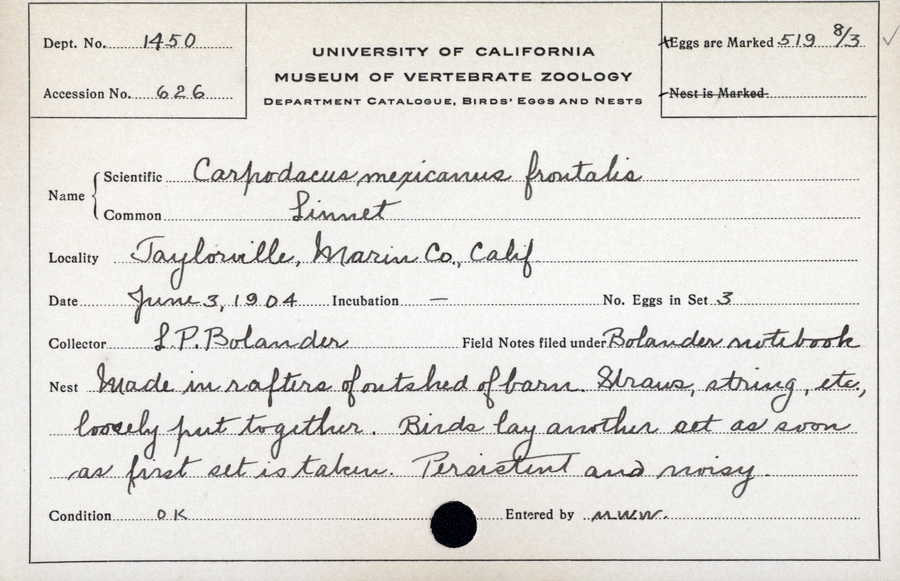 Dept. No. 1450
Accession No. 626
UNIVERSITY OF CALIFORNIA
MUSEUM OF VERTEBRATE ZOOLOGY
DEPARTMENT CATALOGUE, BIRDS' EGGS AND NESTS
Eggs are Marked 519 8/3 ✓
Nest is Marked
Name
Scientific Carpodacus mexicanus frontalis
Common Linnet
Locality Taylorville, Marin Co., Calif
Date June 3, 1904 Incubation — No. Eggs in Set 3
Collector L.P. Bolander Field Notes filed under Bolander notebook
Nest Made in rafters of outshed of barn. Straws, string, etc.,
loosely put together. Birds lay another set as soon
as first set is taken. Persistent and noisy.
Condition OK Entered by M.W.W.